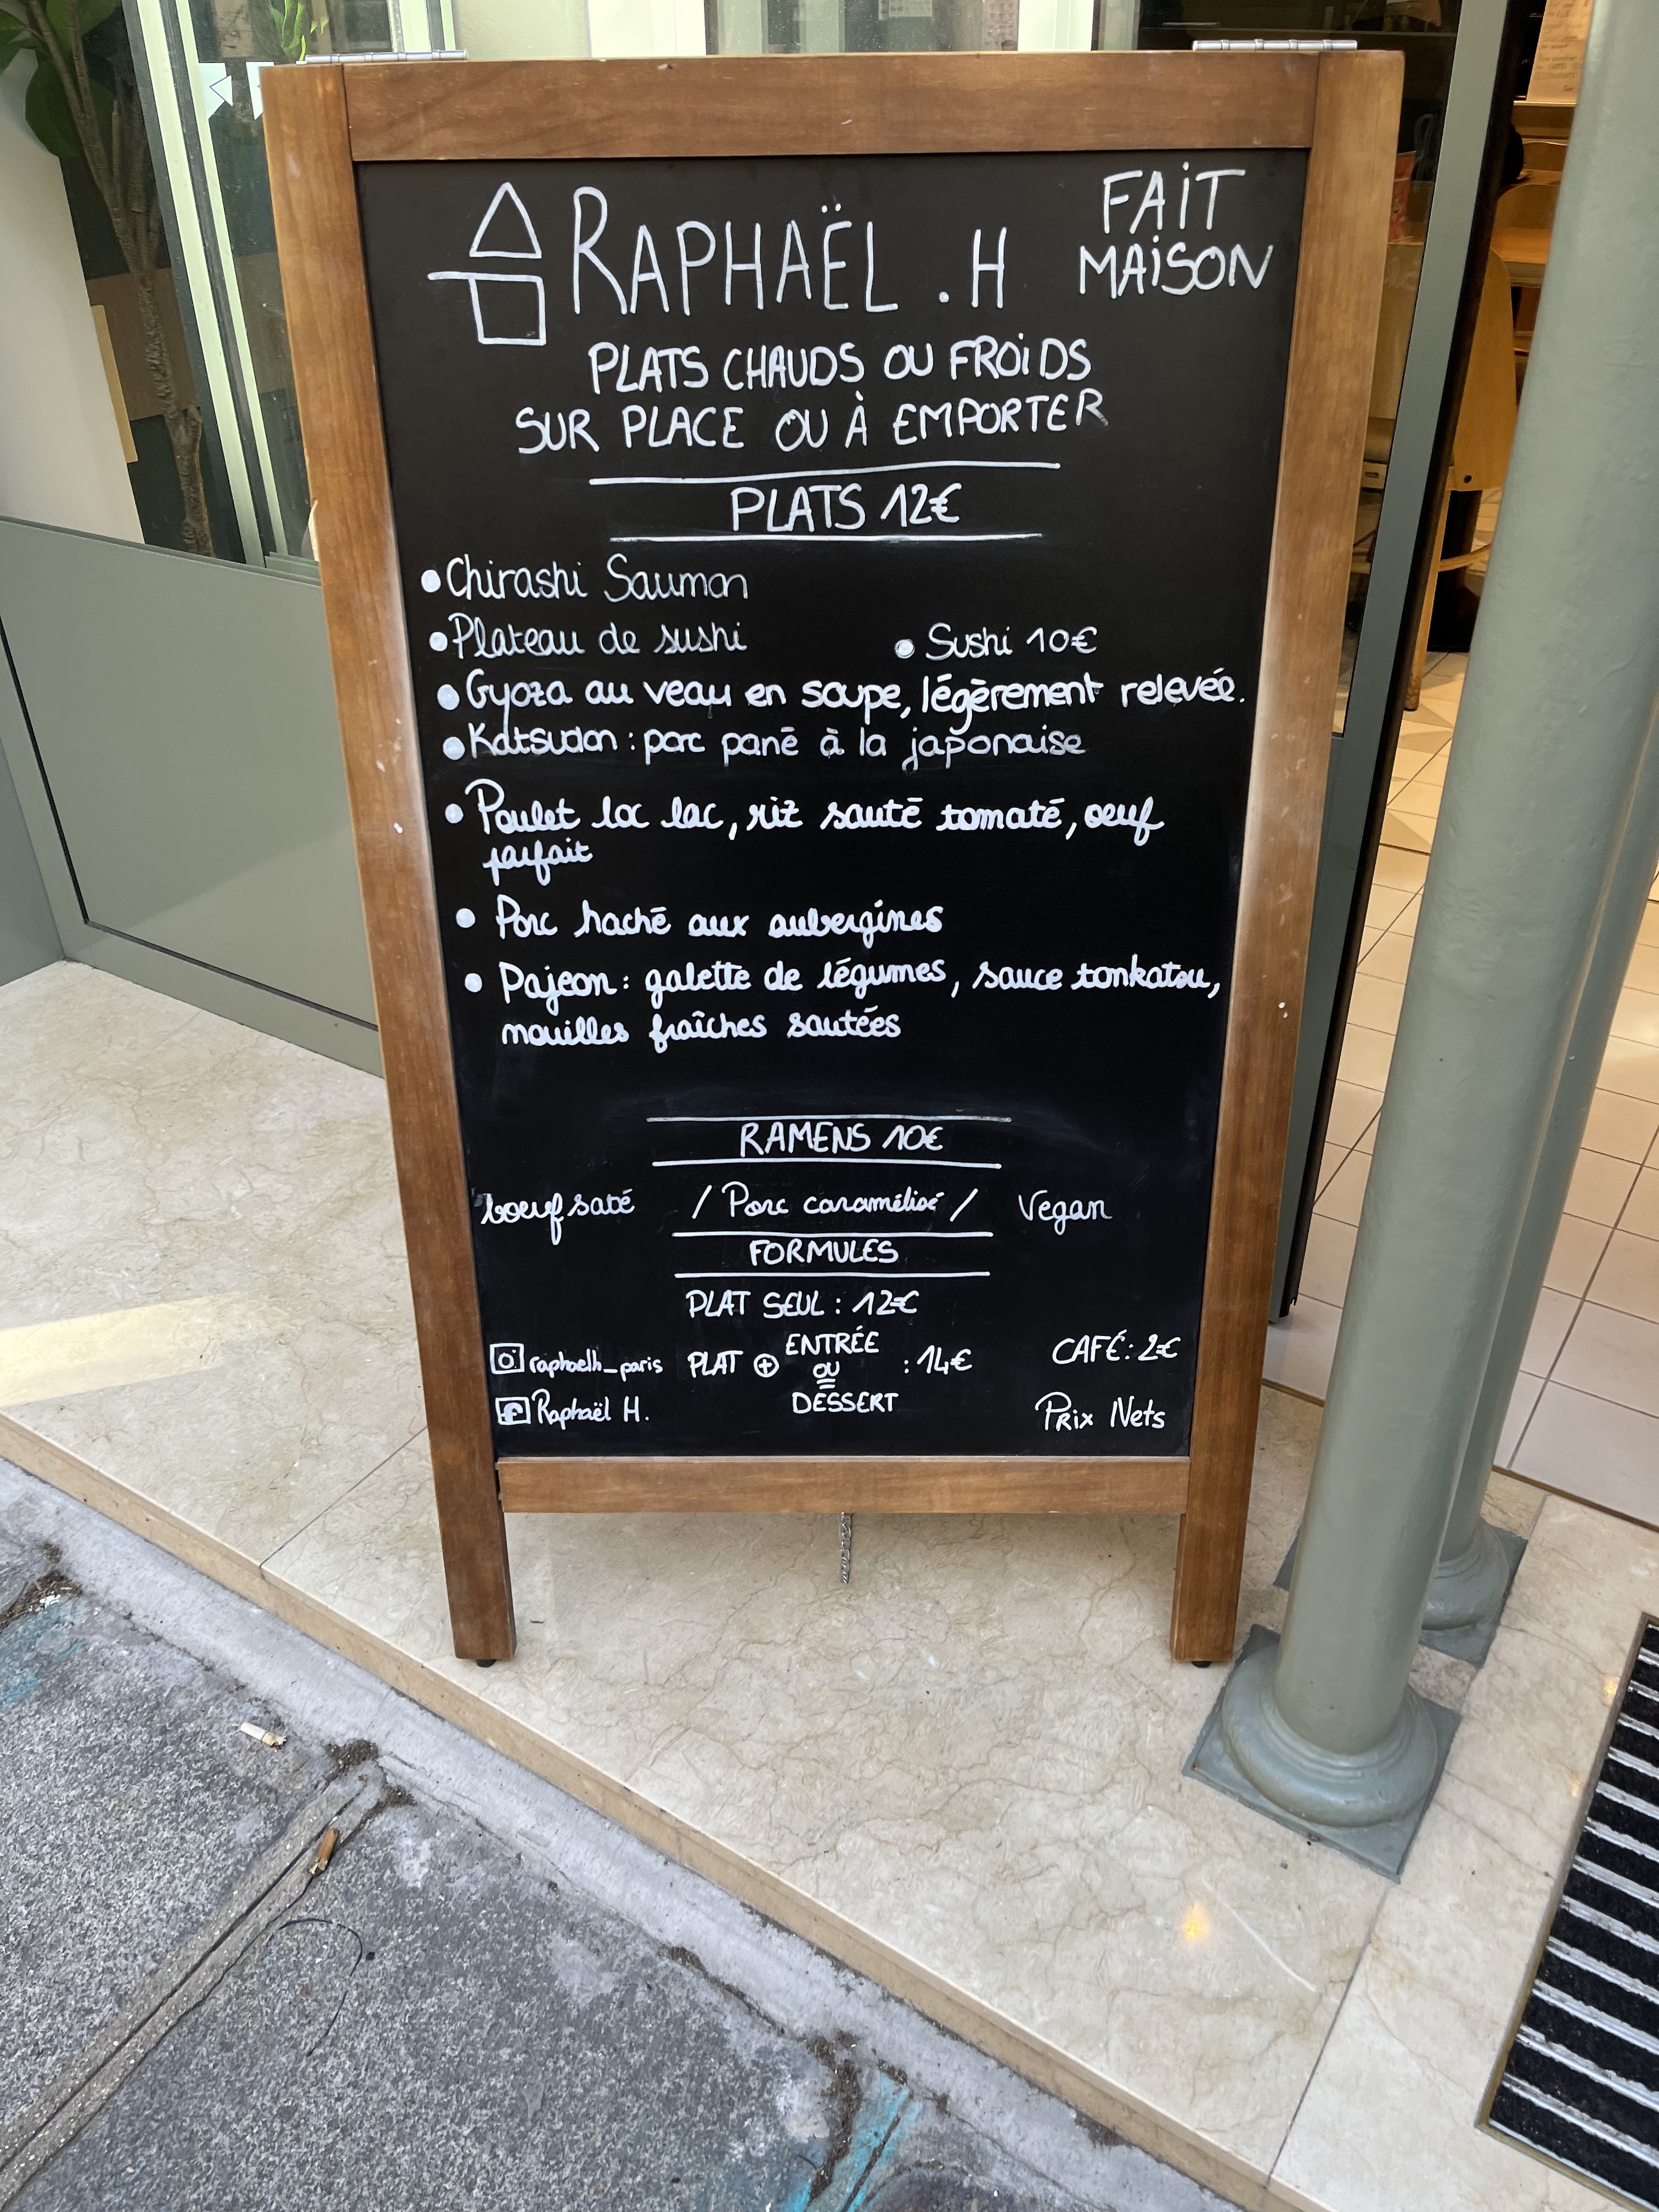 RAPHAËL . H
FAIT
MAISON
PLATS CHAUDS OU FROIDS
SUR PLACE OU À EMPORTER
PLATS 12€
• Chirashi Saumon
• Plateau de sushi
• Sushi 10€
• Gyoza au veau en soupe, légèrement relevée.
• Katsudon : porc pané à la japonaise
• Poulet loc lac, riz sauté tomaté, oeuf
parfait
• Porc haché aux aubergines
• Pajeon : galette de légumes, sauce tonkatsu,
nouilles fraîches sautées
RAMENS 10€
boeuf saté / Porc caramélisé / Vegan
FORMULES
PLAT SEUL : 12€
PLAT + ENTRÉE
OU
DESSERT : 14€
CAFÉ : 2€
Prix Nets
raphaelh_paris
Raphaël H.